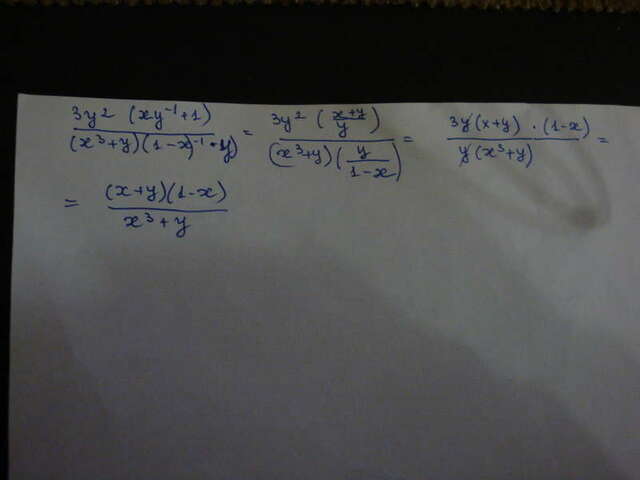 3y² (xy⁻¹+1) / (x³+y)(1-x)⁻¹·y) = 3y² (x+y/y) / (x³+y)(y/1-x) = 3y(x+y)·(1-x) / y(x³+y) =
= (x+y)(1-x) / x³+y